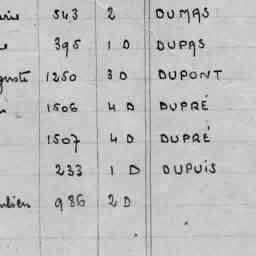 543 2 DUMAS
395 1 D DUPAS
1250 3 D DUPONT
1506 4 D DUPRÉ
1507 4 D DUPRÉ
233 1 D DUPUIS
986 2 D